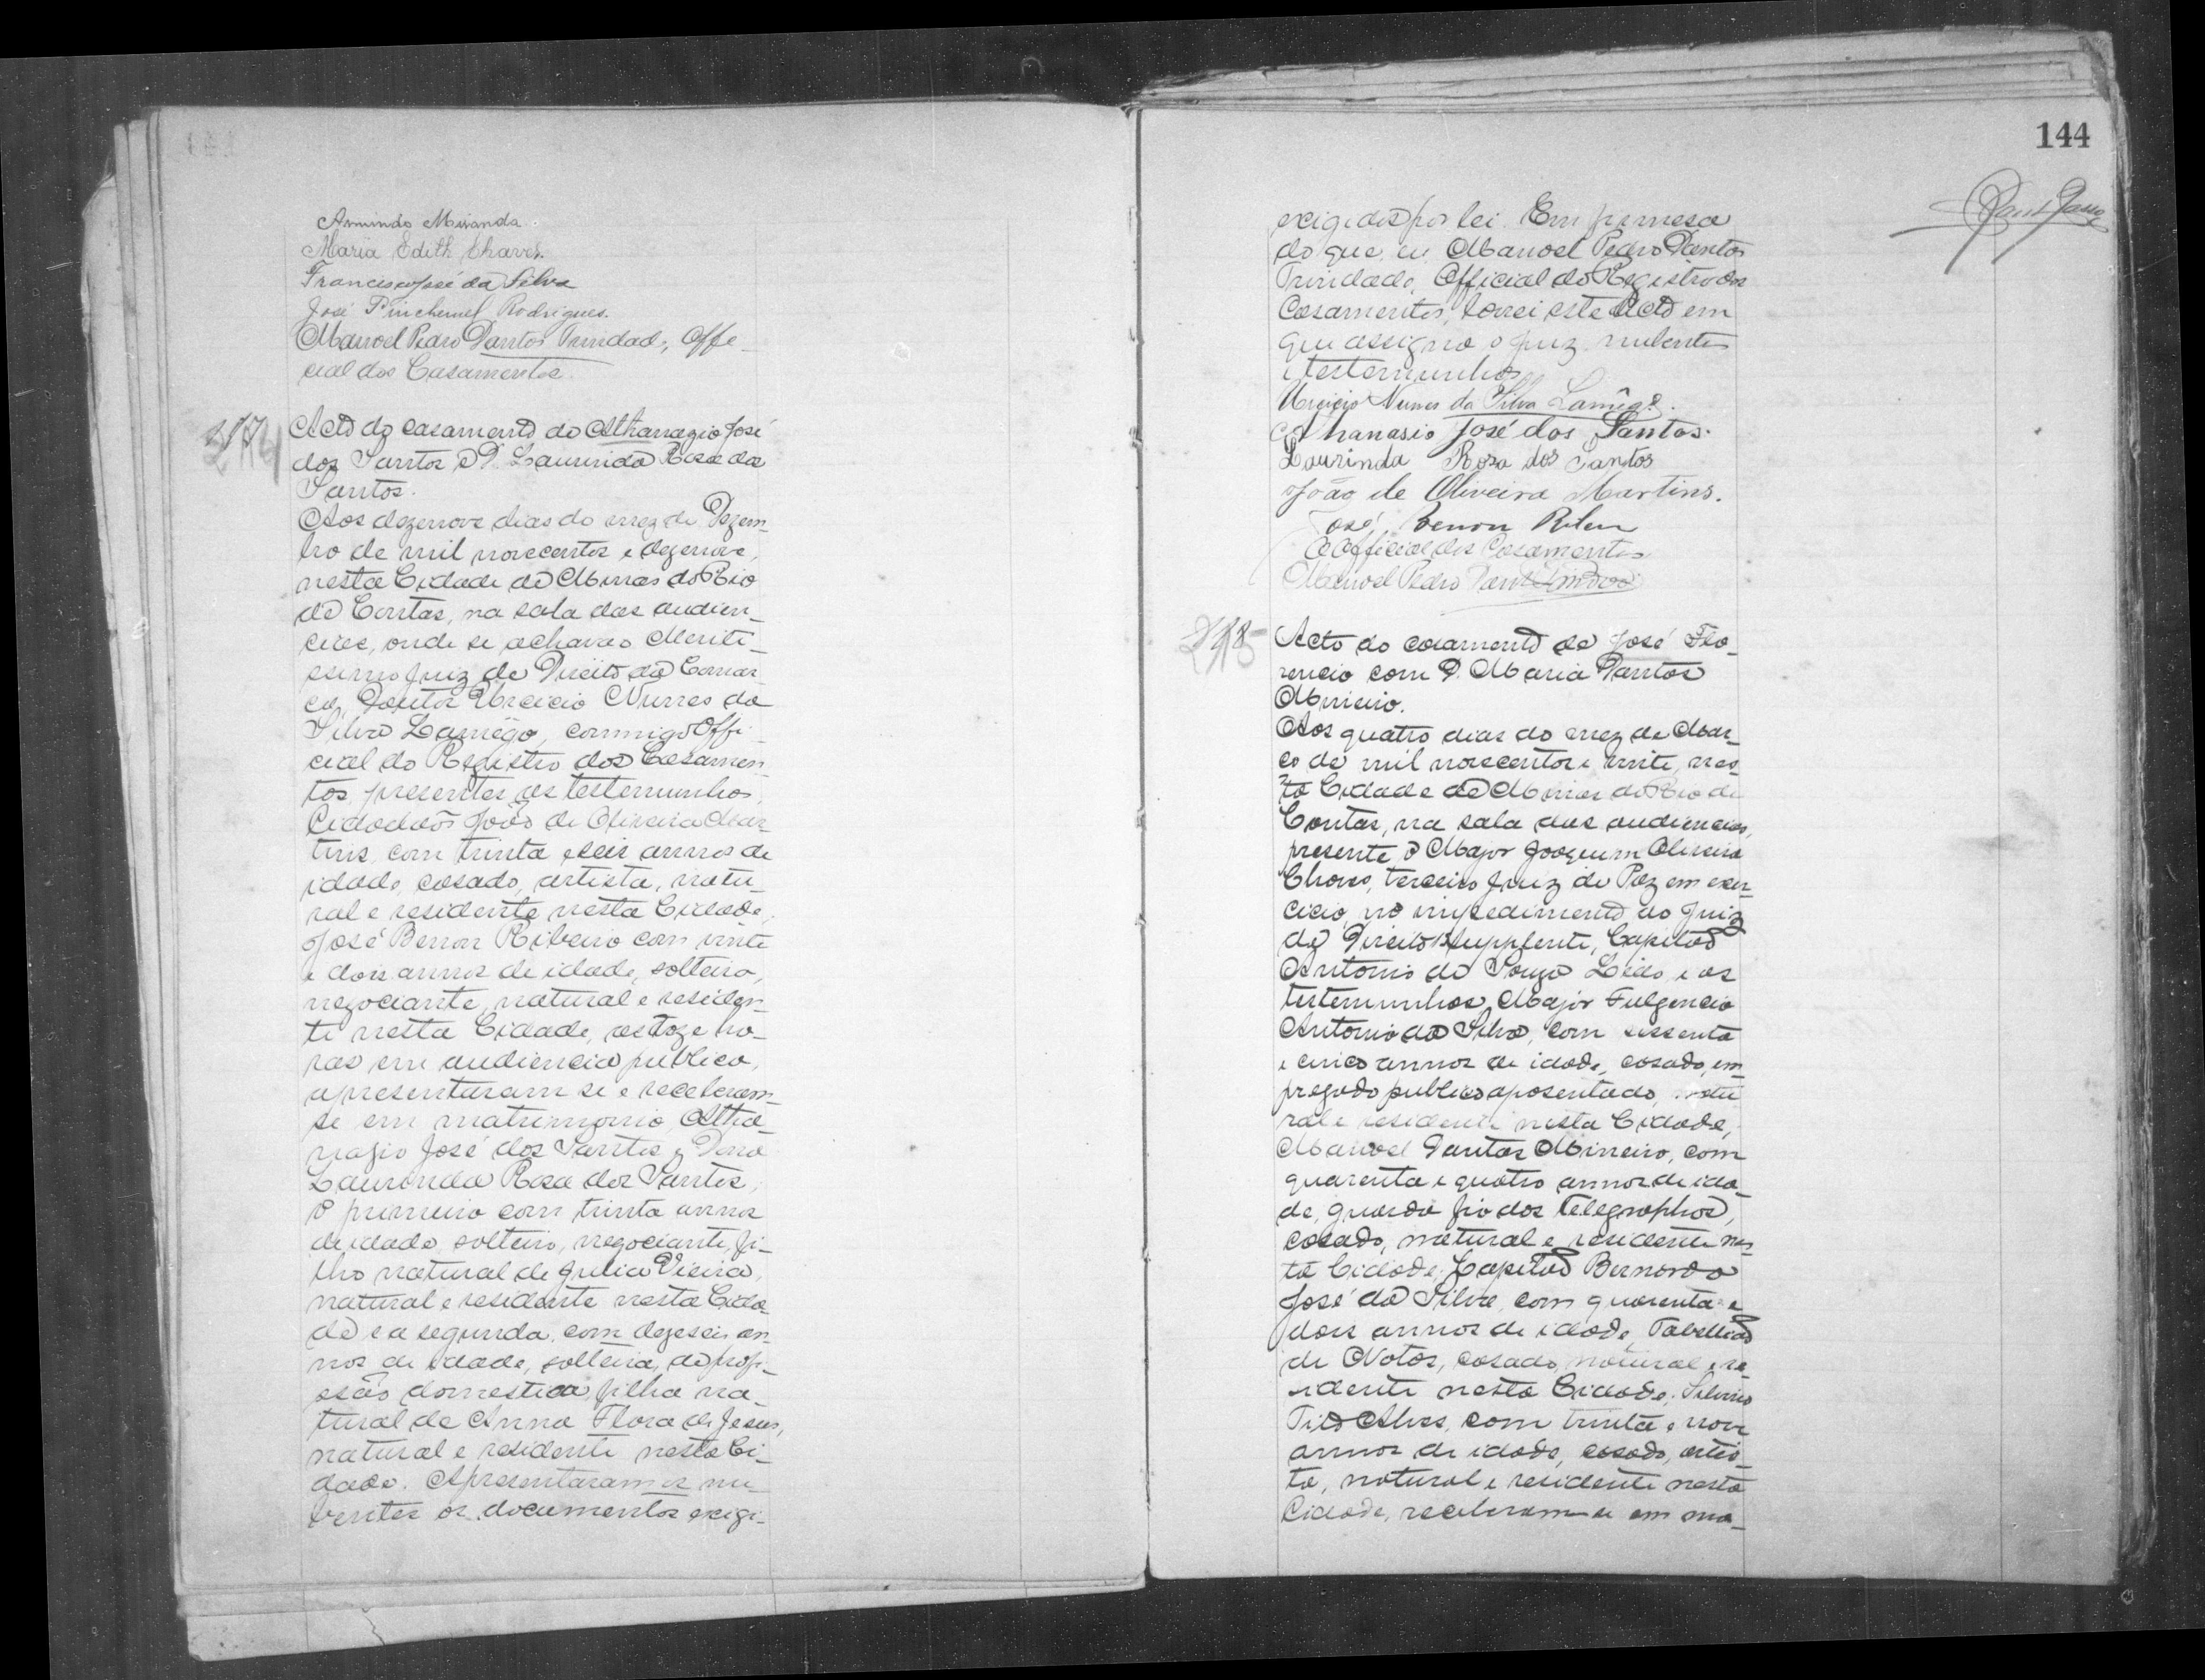 Armindo Miranda.
Maria Edith Chaves.
Francisco José da Silva
José Pinchemel Rodrigues.
Manoel Pedro Dantas Trindade, Offi-
cial dos Casamentos.
274
Acto do casamento de Athanazio José
dos Santos e D. Laurinda Rosa dos
Santos.
Aos dezenove dias do mez de Dezem-
bro de mil novecentos e dezenove,
nesta Cidade de Minas do Rio
de Contas, na sala das audien-
cias, onde se achavão Meriti-
ssimo Juiz de Direito da Comar-
ca, Doutor Urcicio Nunes da
Silva Lamêgo, commigo Offi-
cial do Registro dos Casamen-
tos, presentes as testemunhas,
Cidadãos João de Oliveira Mar-
tins, com trinta e seis annos de
idade, casado, artista, natu-
ral e residente nesta Cidade,
José Benon Ribeiro com vinte
e dois annos de idade, solteiro,
negociante, natural e residen-
te nesta Cidade, as doze ho-
ras em audiencia publica,
apresentaram se e receberam-
se em matrimonio Atha-
nazio José dos Santos e Dona
Laurinda Rosa dos Santos,
o primeiro com trinta annos
de idade, solteiro, negociante, fi-
lho natural de Julia Vieira,
natural e residente nesta Cida-
de e a segunda, com dezeseis an-
nos de idade, solteira, de profi-
ssão domestica, filha na-
tural de Anna Flora de Jesus,
natural e residente nesta Ci-
dade. Apresentaram os nu-
bentes os documentos exigi-
144
exigidos por lei. Em firmesa
do que, eu, Manoel Pedro Dantas
Trindade, Official do Registro dos
Casamentos, lavrei este Acto em
que assigna o juiz, nubentes
e testemunhas.
Urcicio Nunes da Silva Lamêgo.
Athanasio José dos Santos.
Laurinda Rosa dos Santos
João de Oliveira Martins.
José Benon Ribeiro
O Official dos Casamentos
Manoel Pedro Dantas Trindade
275
Acto do casamento de José Flo-
rencio com D. Maria Dantas
Mineiro.
Aos quatro dias do mez de Mar-
ço de mil novecentos e vinte, nes-
ta Cidade de Minas do Rio de
Contas, na sala das audiencias,
presente o Major Joaquim Oliveira
Chaves, terceiro Juiz de Paz em exer-
cicio, no impedimento do Juiz
de Direito Supplente, Capitão
Antonio de Souza Lêdo, e as
testemunhas, Major Fulgencio
Antonio da Silva, com sessenta
e cinco annos de idade, casado, em-
pregado publico aposentado, natu
ral e residente nesta Cidade,
Manoel Dantas Mineiro, com
quarenta e quatro annos de ida-
de, guarda fio dos Telegraphos,
casado, natural e residente nes-
ta Cidade; Capitão Bernardo
José da Silva, com quarenta e
dois annos de idade, Tabellião
de Notas, casado, natural e re-
sidente nesta Cidade; Silvino
Tito Alves, com trinta e nove
annos de idade, casado, artis-
ta, natural e residente nesta
Cidade, receberam-se em ma-